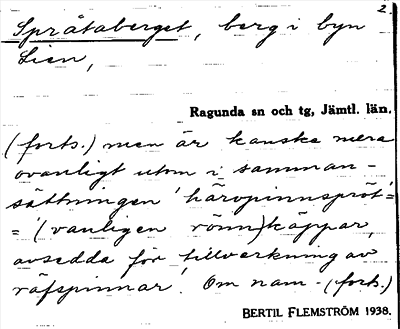 2.
Språtaberget, berg i byn
Lien,
Ragunda sn och tg, Jämtl. län.
(forts.) men är kanske mera
ovanligt utom i samman-
sättningen 'härvpinnspröt'
= '(vanligen rönn)käppar,
avsedda för tillverkning av
räfspinnar'. Om nam- (forts.)
BERTIL FLEMSTRÖM 1938.